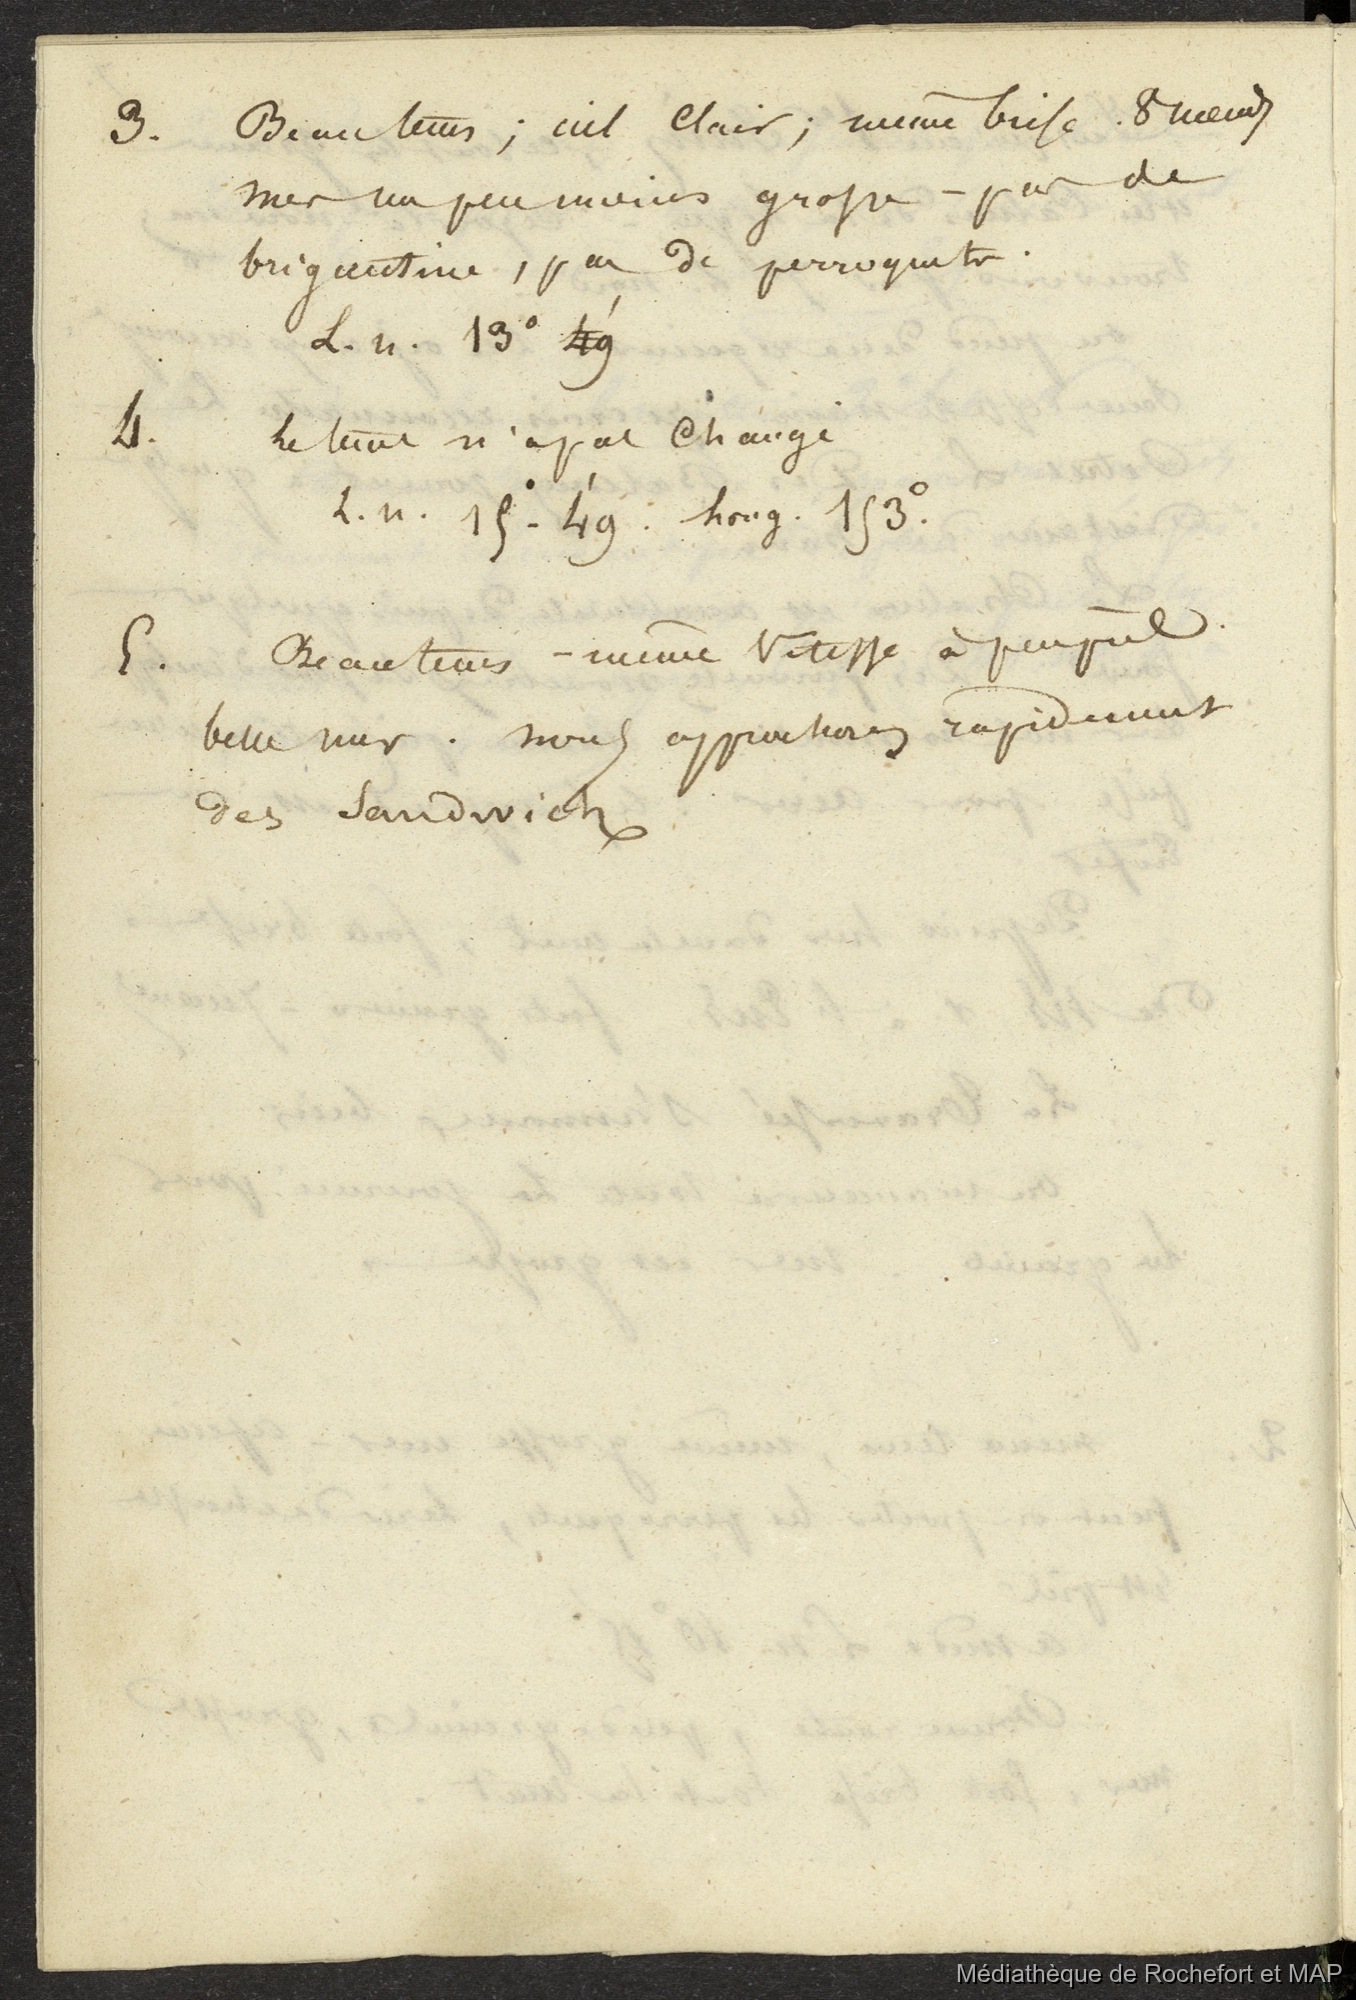 3. Beau temps ; ciel clair ; même brise . 8 nœuds
mer un peu moins grosse - pas de
brigantine , pas de perroquets .
L. n. 13° 49'
4. Le tems n'a pas changé
L. n. 15° - 49' . Long. 153° .
5. Beau temps - même vitesse à peu près .
belle mer . nous approchons rapidement
des Sandwich
Médiathèque de Rochefort et MAP